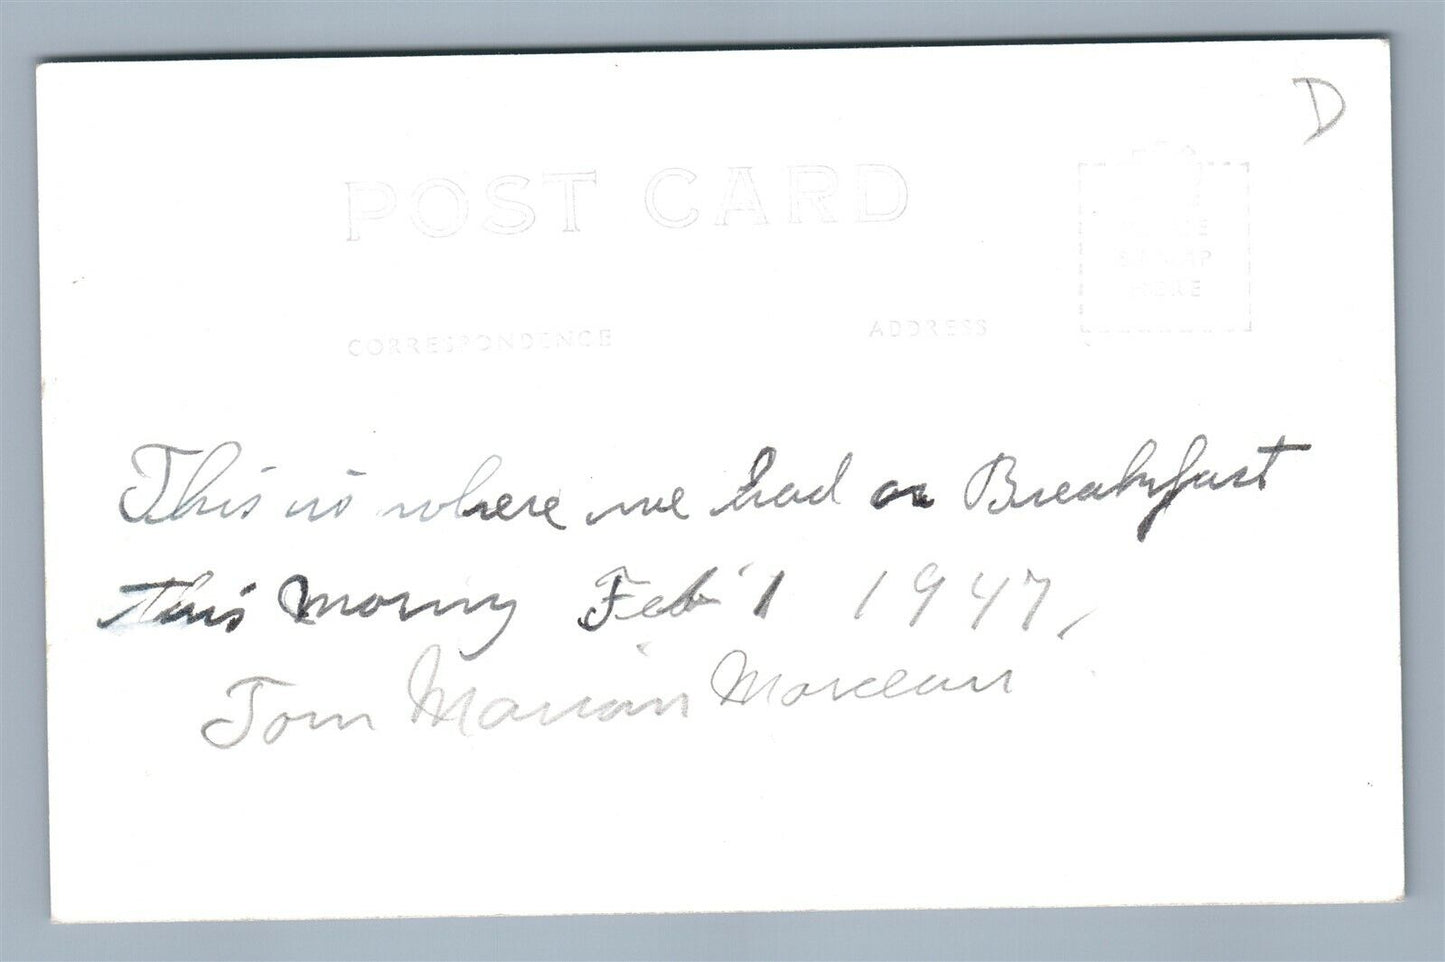 D
POST CARD
PLACE
STAMP
HERE
CORRESPONDENCE
ADDRESS
This is where we had a Breakfast
this Morning Feb 1 1947,
Tom Marian